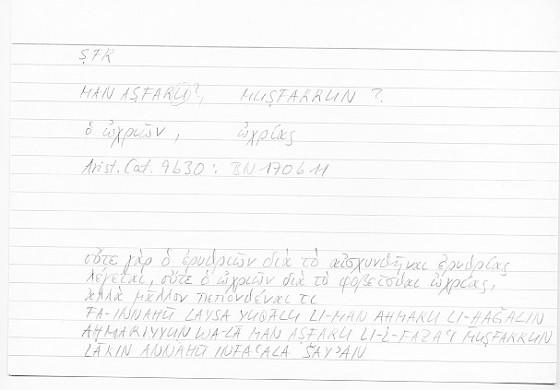 ṢFR
MAN AṢFARU ?, MUṢFARRUN ?
ὁ ὠχριῶν, ὠχρίας
Arist. Cat. 9b30: BN 170b11
οὔτε γὰρ ὁ ἐρυθριῶν διὰ τὸ αἰσχυνθῆναι ἐρυθρίας
λέγεται, οὔτε ὁ ὠχριῶν διὰ τὸ φοβεῖσθαι ὠχρίας,
ἀλλὰ μᾶλλον πεπονθέναι τι
FA-INNAHŪ LAYSA YUQĀLU LI-MAN AḤMARU LI-ḪAǦALIN
AḤMARIYYUN WA-LĀ MAN AṢFARU LI-L-FAZAʿI MUṢFARRUN
LĀKIN ANNAHŪ INFAʿALA ŠAYʾAN